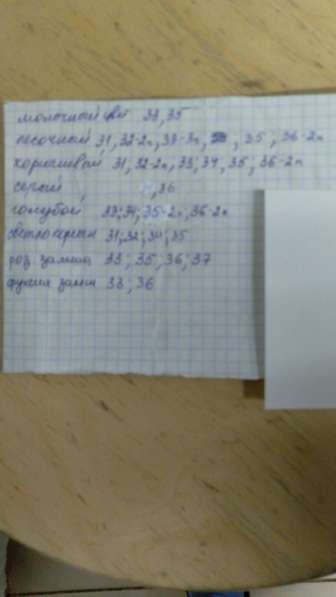 молочный цвет 33, 35
песочный 31, 32-2п, 33-3п, , 35, 36-2п
коричневый 31, 32-2п, 33, 34, 35, 36-2п
серый , 36
голубой 33; 34; 35-2п, 36-2п
31; 32; 34; 35
роз замша 33; 35; 36; 37
фуксия замш 33; 36